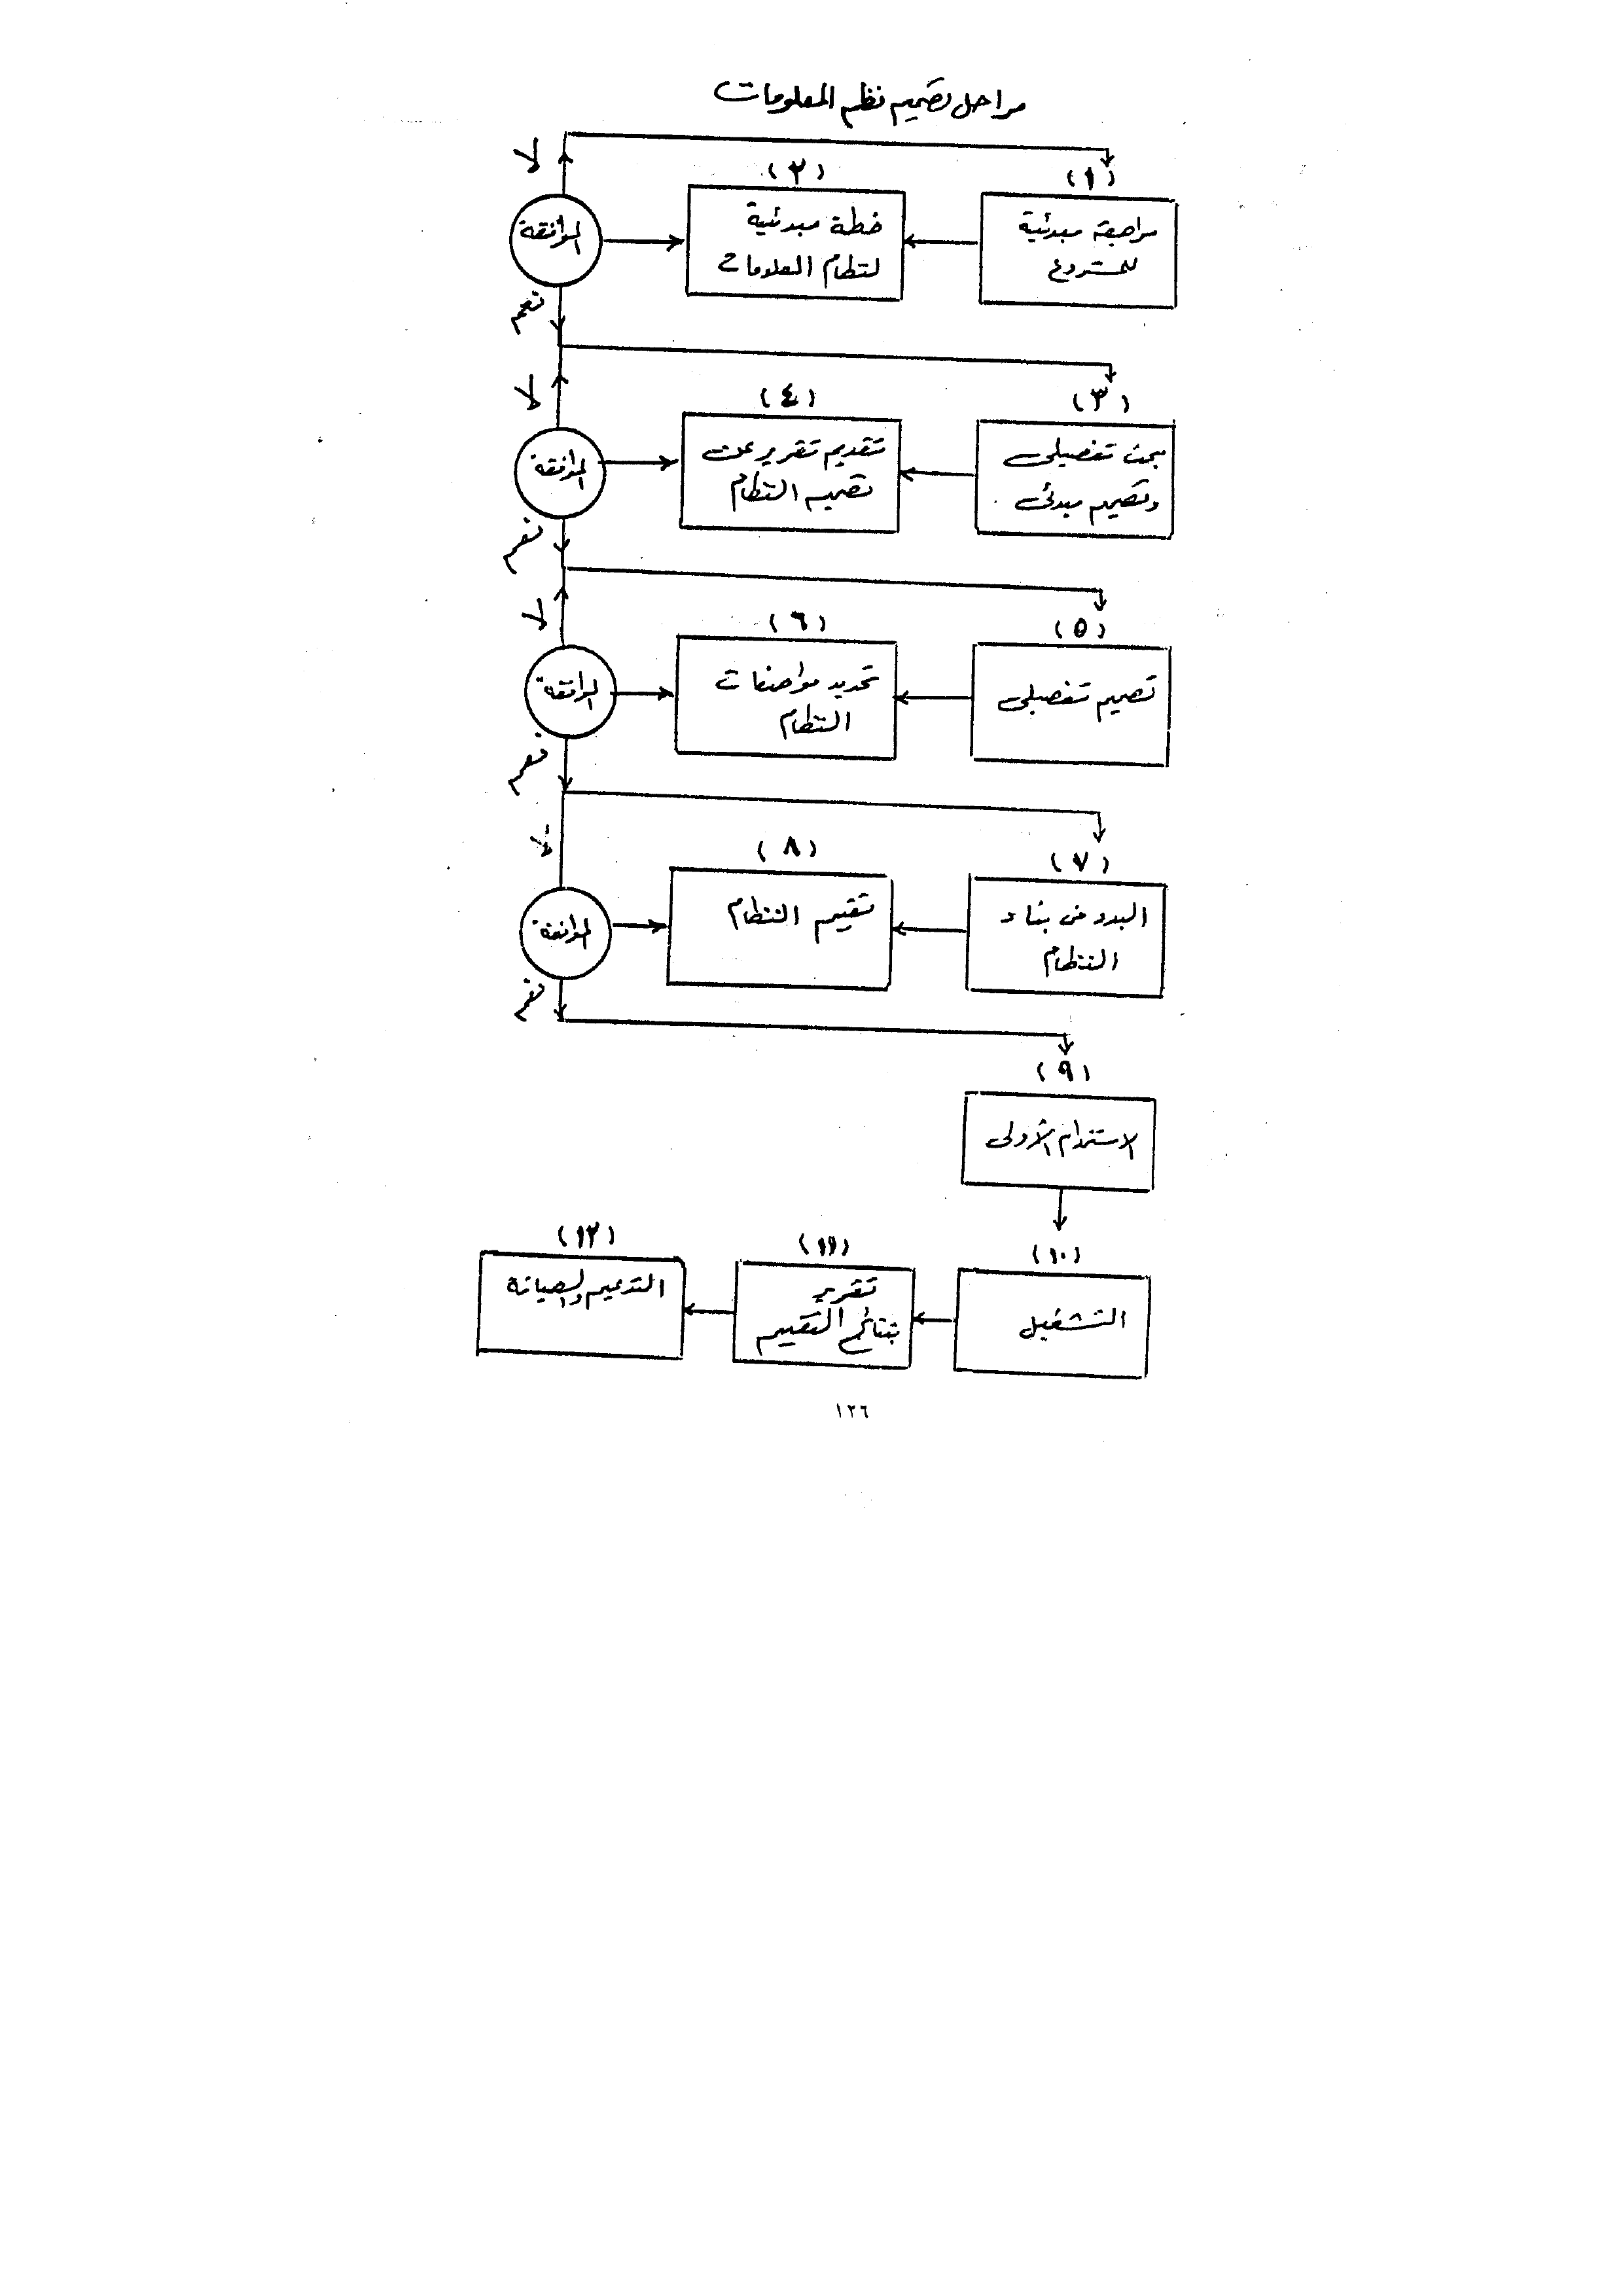 مراحل تصميم نظم المعلومات
(١)
مراجعة مبدئية
للمشروع
(٢)
خطة مبدئية
لنظام المعلومات
الموافقة
لا
نعم
(٣)
بحث تفصيلى
وتصميم مبدئى
(٤)
تقديم تقرير عن
تصميم النظام
الموافقة
لا
نعم
(٥)
تصميم تفصيلى
(٦)
تحديد مواصفات
النظام
الموافقة
لا
نعم
(٧)
البدء فى بناء
النظام
(٨)
تقييم النظام
الموافقة
لا
نعم
(٩)
الاستخدام الأولى
(١٠)
التشغيل
(١١)
تقرير
بنتائج التقييم
(١٢)
التدعيم والصيانة
١٢٦